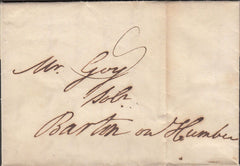 Mr. Goy
Solr.
Barton on Humber